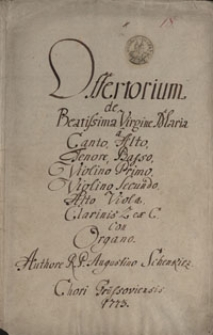 18
Offertorium
de
Beatissima Virgine Maria
a
Canto, Alto,
Tenore, Basso,
Violino Primo,
Violino Secundo,
Alto Viola
Clarinis 2 ex C.
Con
Organo.
Authore R. P. Augustino Schenkirz
Chori Grissoviensis.
1773.